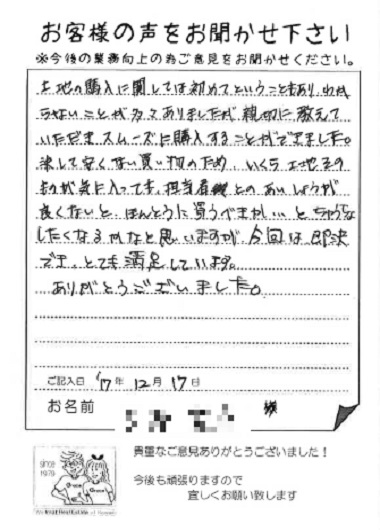 お客様の声をお聞かせ下さい
※今後の業務向上の為ご意見をお聞かせください。
土地の購入に関しては初めてということもあり、わか
らないことが多々ありましたが、親切に教えて
いただきスムーズに購入することができました。
決して安くない買い物のため、いくら土地その
ものが気に入っても、担当者様とのあいしょうが
良くないと、ほんとうに買うべきかしらと、ちゅうちょ
したくなるかなと思いますが、今回は、即決
でき、とても満足しています。
ありがとうございました。
ご記入日 '17年 12月 17日
お名前 様
SINCE
1979
貴重なご意見ありがとうございました！
今後も頑張りますので
宜しくお願い致します